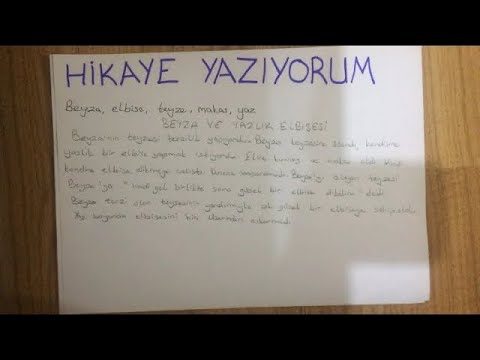 HİKAYE YAZIYORUM
Beyza, elbise, teyze, makas, yaz
BEYZA VE YAZLIK ELBİSESİ
Beyza'nın teyzesi terzilik yapıyordu. Beyza teyzesine özendi, kendine
yazlık bir elbise yapmak istiyordu. Eline kumaş ve makas aldı
kendine elbise dikmeye çalıştı bunu başaramadı. Beyza'yı teyzesi
Beyza'ya " gel birlikte sana güzel bir elbise dikelim" dedi.
Beyza terzi olan teyzesinin yardımıyla çok güzel bir elbiseye
Yaz boyunca elbisesini